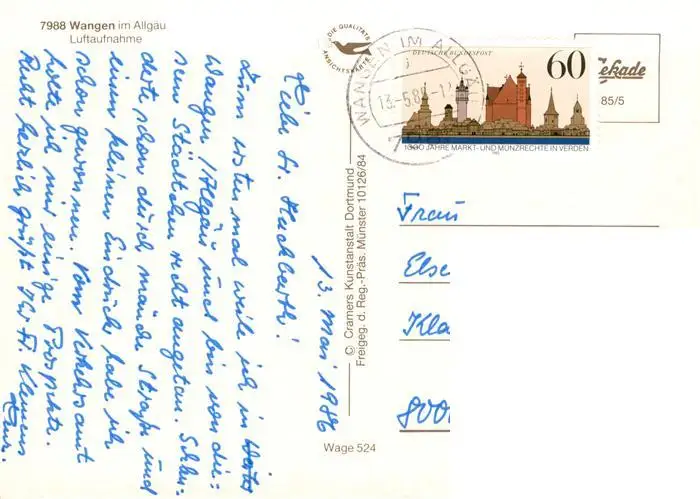 7988 Wangen im Allgäu
Luftaufnahme
DIE QUALITÄTS
ANSICHTSKARTE
WANGEN IM ALLGÄU
13.-5.86
DEUTSCHE BUNDESPOST
60
1000 JAHRE MARKT- UND MÜNZRECHTE IN VERDEN
ekade
85/5
13. Mai 1986
Liebe Fr. Hackbarth!
Zum erstenmal weile ich in
Wangen/Allgäu und bin von die-
sem Städtchen recht angetan. Schlen-
derte schon durch manche Straße und
einen kleinen Eindruck habe ich
schon gewonnen. Vom Verkehrsamt
holte ich mir einige Prospekte.
Recht herzlich grüßt Ihr Fr. Klemens
© Cramers Kunstanstalt Dortmund
Freigeg. d. Reg.-Präs. Münster 10126/84
Wage 524
Frau
Else
Kla
800